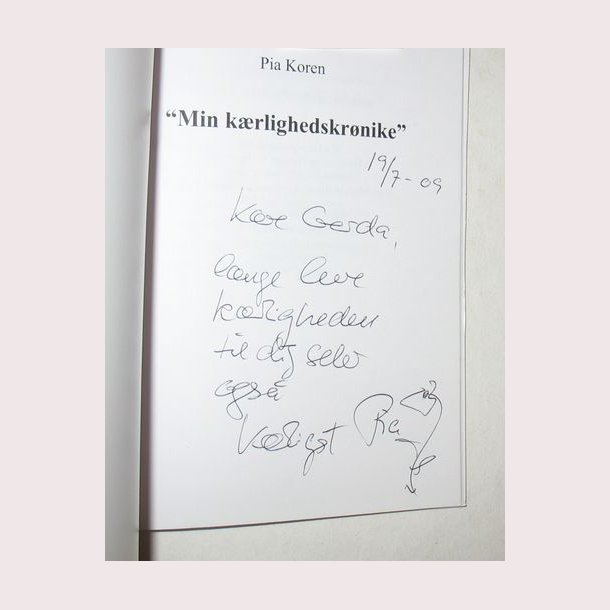 Pia Koren
“Min kærlighedskrønike”
19/7-09
Kære Gerda,
længe leve
kærligheden
til dig selv
også
Kærligst Pia